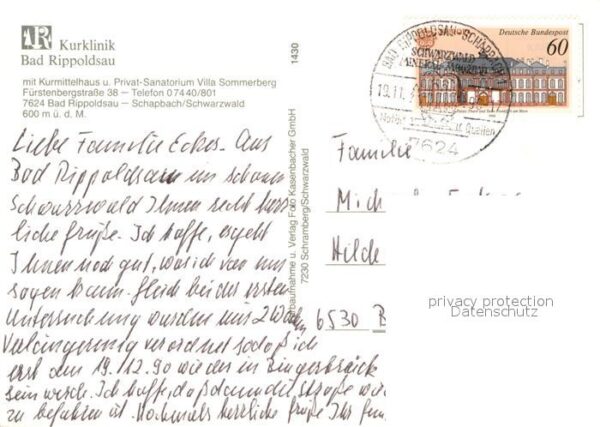 AR Kurklinik
Bad Rippoldsau
mit Kurmittelhaus u. Privat-Sanatorium Villa Sommerberg
Fürstenbergstraße 38 – Telefon 0 74 40/801
7624 Bad Rippoldsau – Schapbach/Schwarzwald
600 m ü. d. M.
1430
Luftbaufnahme u. Verlag Foto Kasenbacher GmbH
7230 Schramberg/Schwarzwald
Deutsche Bundespost
60
BAD RIPPOLDSAU-SCHAPBACH
SCHWARZWALD
19.11.
u. Quellen
7624
Liebe Familie Eckes. Aus
Bad Rippoldsau im schönen
Schwarzwald Ihnen recht herz
liche Grüße. Ich hoffe, es geht
Ihnen noch gut, was ich von uns
sagen kann. Gleich bei der ersten
Untersuchung wurden mir 2 Wochen
Verlängerung verordnet sodaß ich
erst am 19.12.90 wieder in Bingerbrück
sein werde. Ich hoffe, daß dann die Straße wie
zu befahren ist. Nochmals herzliche Grüße Ihr
Familie
Mich
Hilde
6530 B
privacy protection
Datenschutz